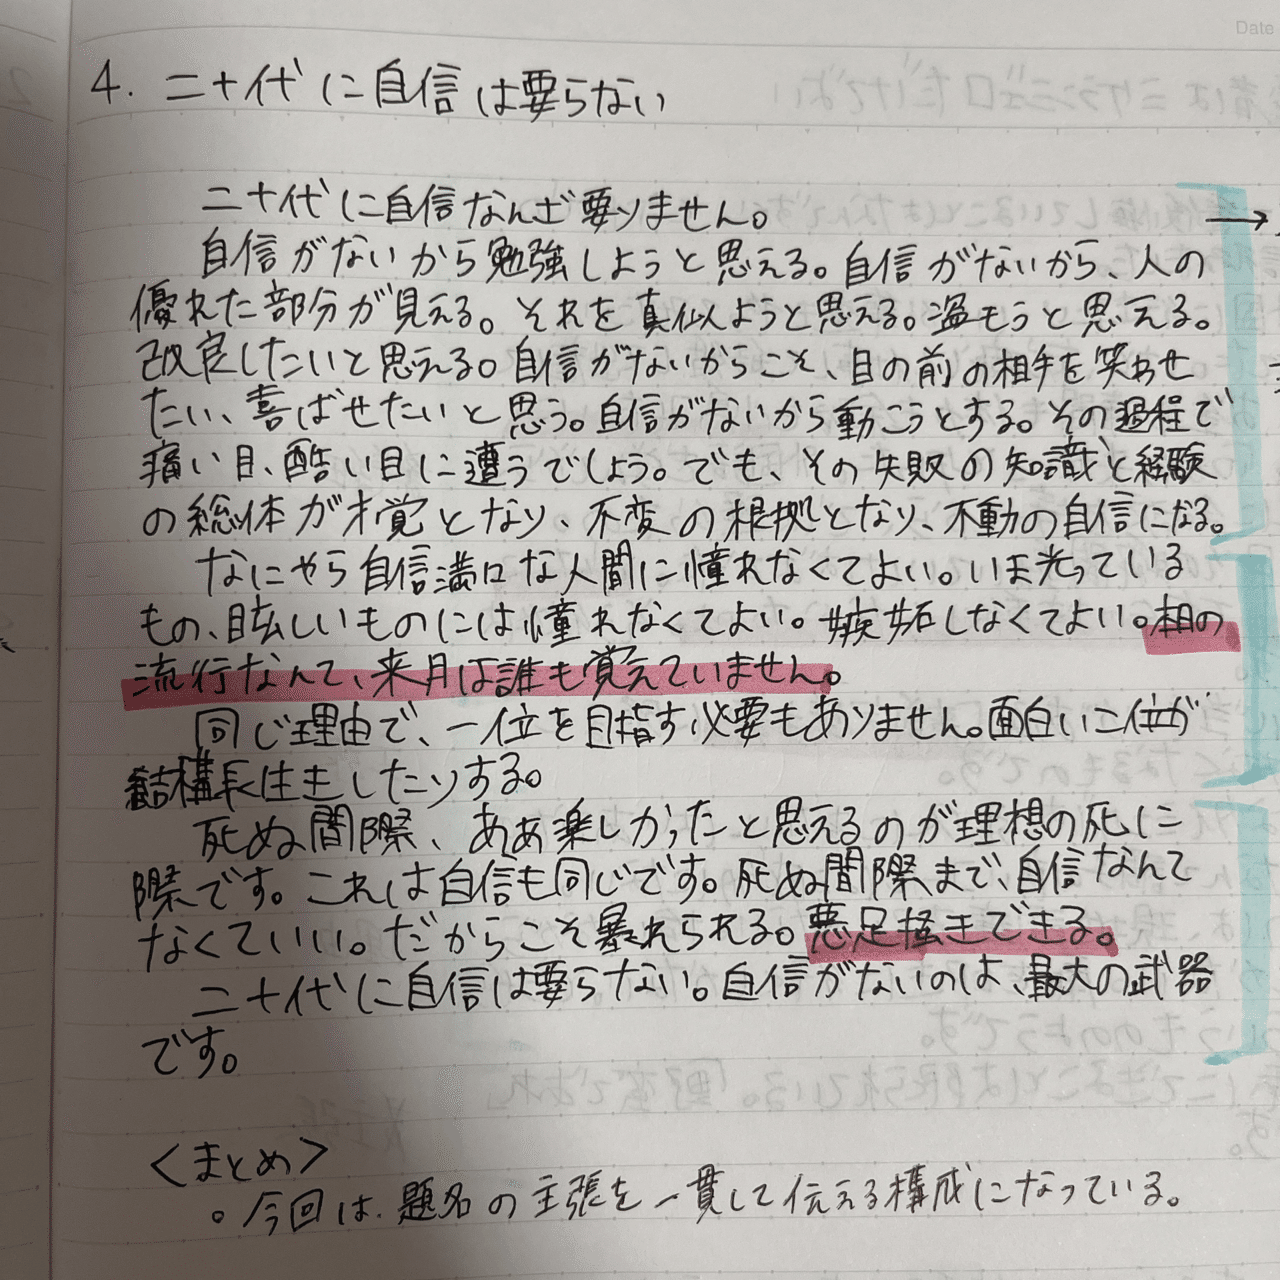 Date
4. 二十代に自信は要らない
二十代に自信なんざ要りません。
自信がないから勉強しようと思える。自信がないから、人の
優れた部分が見える。それを真似ようと思える。盗もうと思える。
改良したいと思える。自信がないからこそ、目の前の相手を笑わせ
たい、喜ばせたいと思う。自信がないから動こうとする。その過程で
痛い目、酷い目に遭うでしょう。でも、その失敗の知識と経験
の総体が才覚となり、不変の根拠となり、不動の自信になる。
なにやら自信満々な人間に憧れなくてよい。いま光っている
もの、眩しいものには憧れなくてよい。嫉妬しなくてよい。相の
流行なんて、来月は誰も覚えていません。
同じ理由で、一位を目指す必要もありません。面白い二位が
結構長生きしたりする。
死ぬ間際、ああ楽しかったと思えるのが理想の死に
際です。これは自信も同じです。死ぬ間際まで、自信なんて
なくていい。だからこそ暴れられる。悪足掻きできる。
二十代に自信は要らない。自信がないのは、最大の武器
です。
<まとめ>
。今回は、題名の主張を一貫して伝える構成になっている。